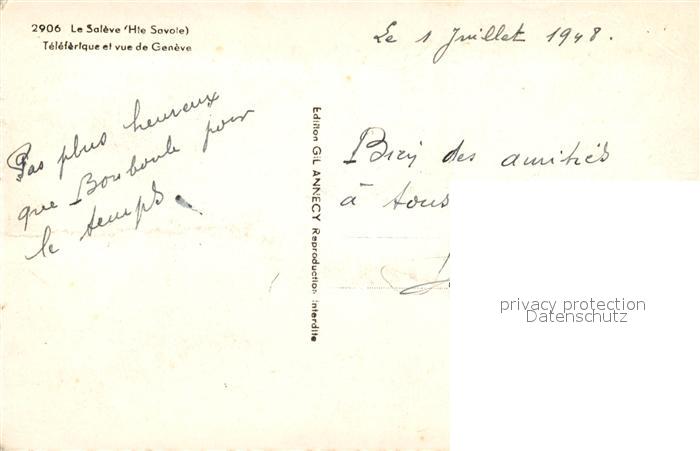 2906 Le Salève (Hte Savoie)
Téléférique et vue de Genève
Le 1 Juillet 1948.
Pas plus heureux
que Bouboule pour
le temps.
Edition GIL ANNECY Reproduction interdite
des amitiés
à tous
privacy protection
Datenschutz